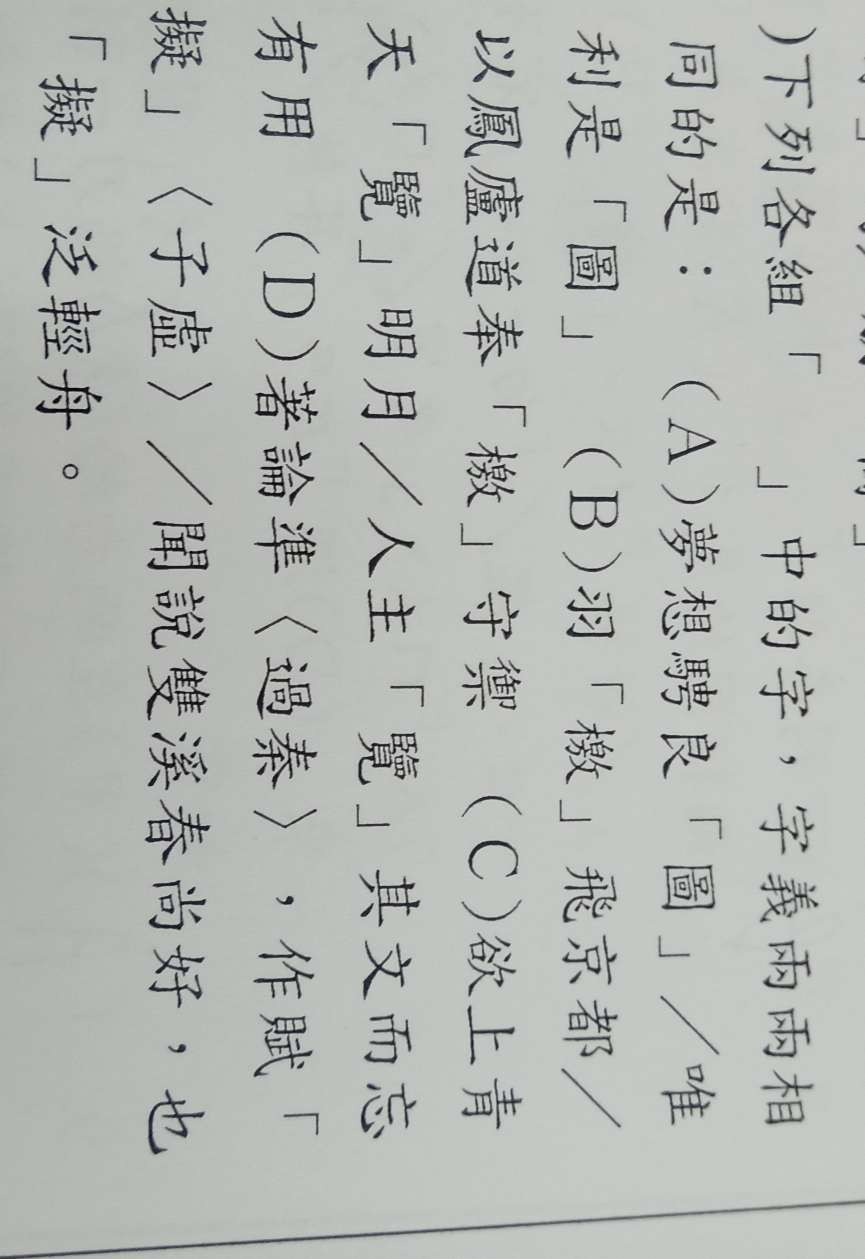 )下列各組「　」中的字，字義兩兩相
同的是： (A)夢想騁良「圖」／唯
利是「圖」 (B)羽「檄」飛京都／
以鳳廬道奉「檄」守禦 (C)欲上青
天「覽」明月／人主「覽」其文而忘
有用 (D)著論準〈過秦〉，作賦「
擬」〈子虛〉／聞說雙溪春尚好，也
「擬」泛輕舟。